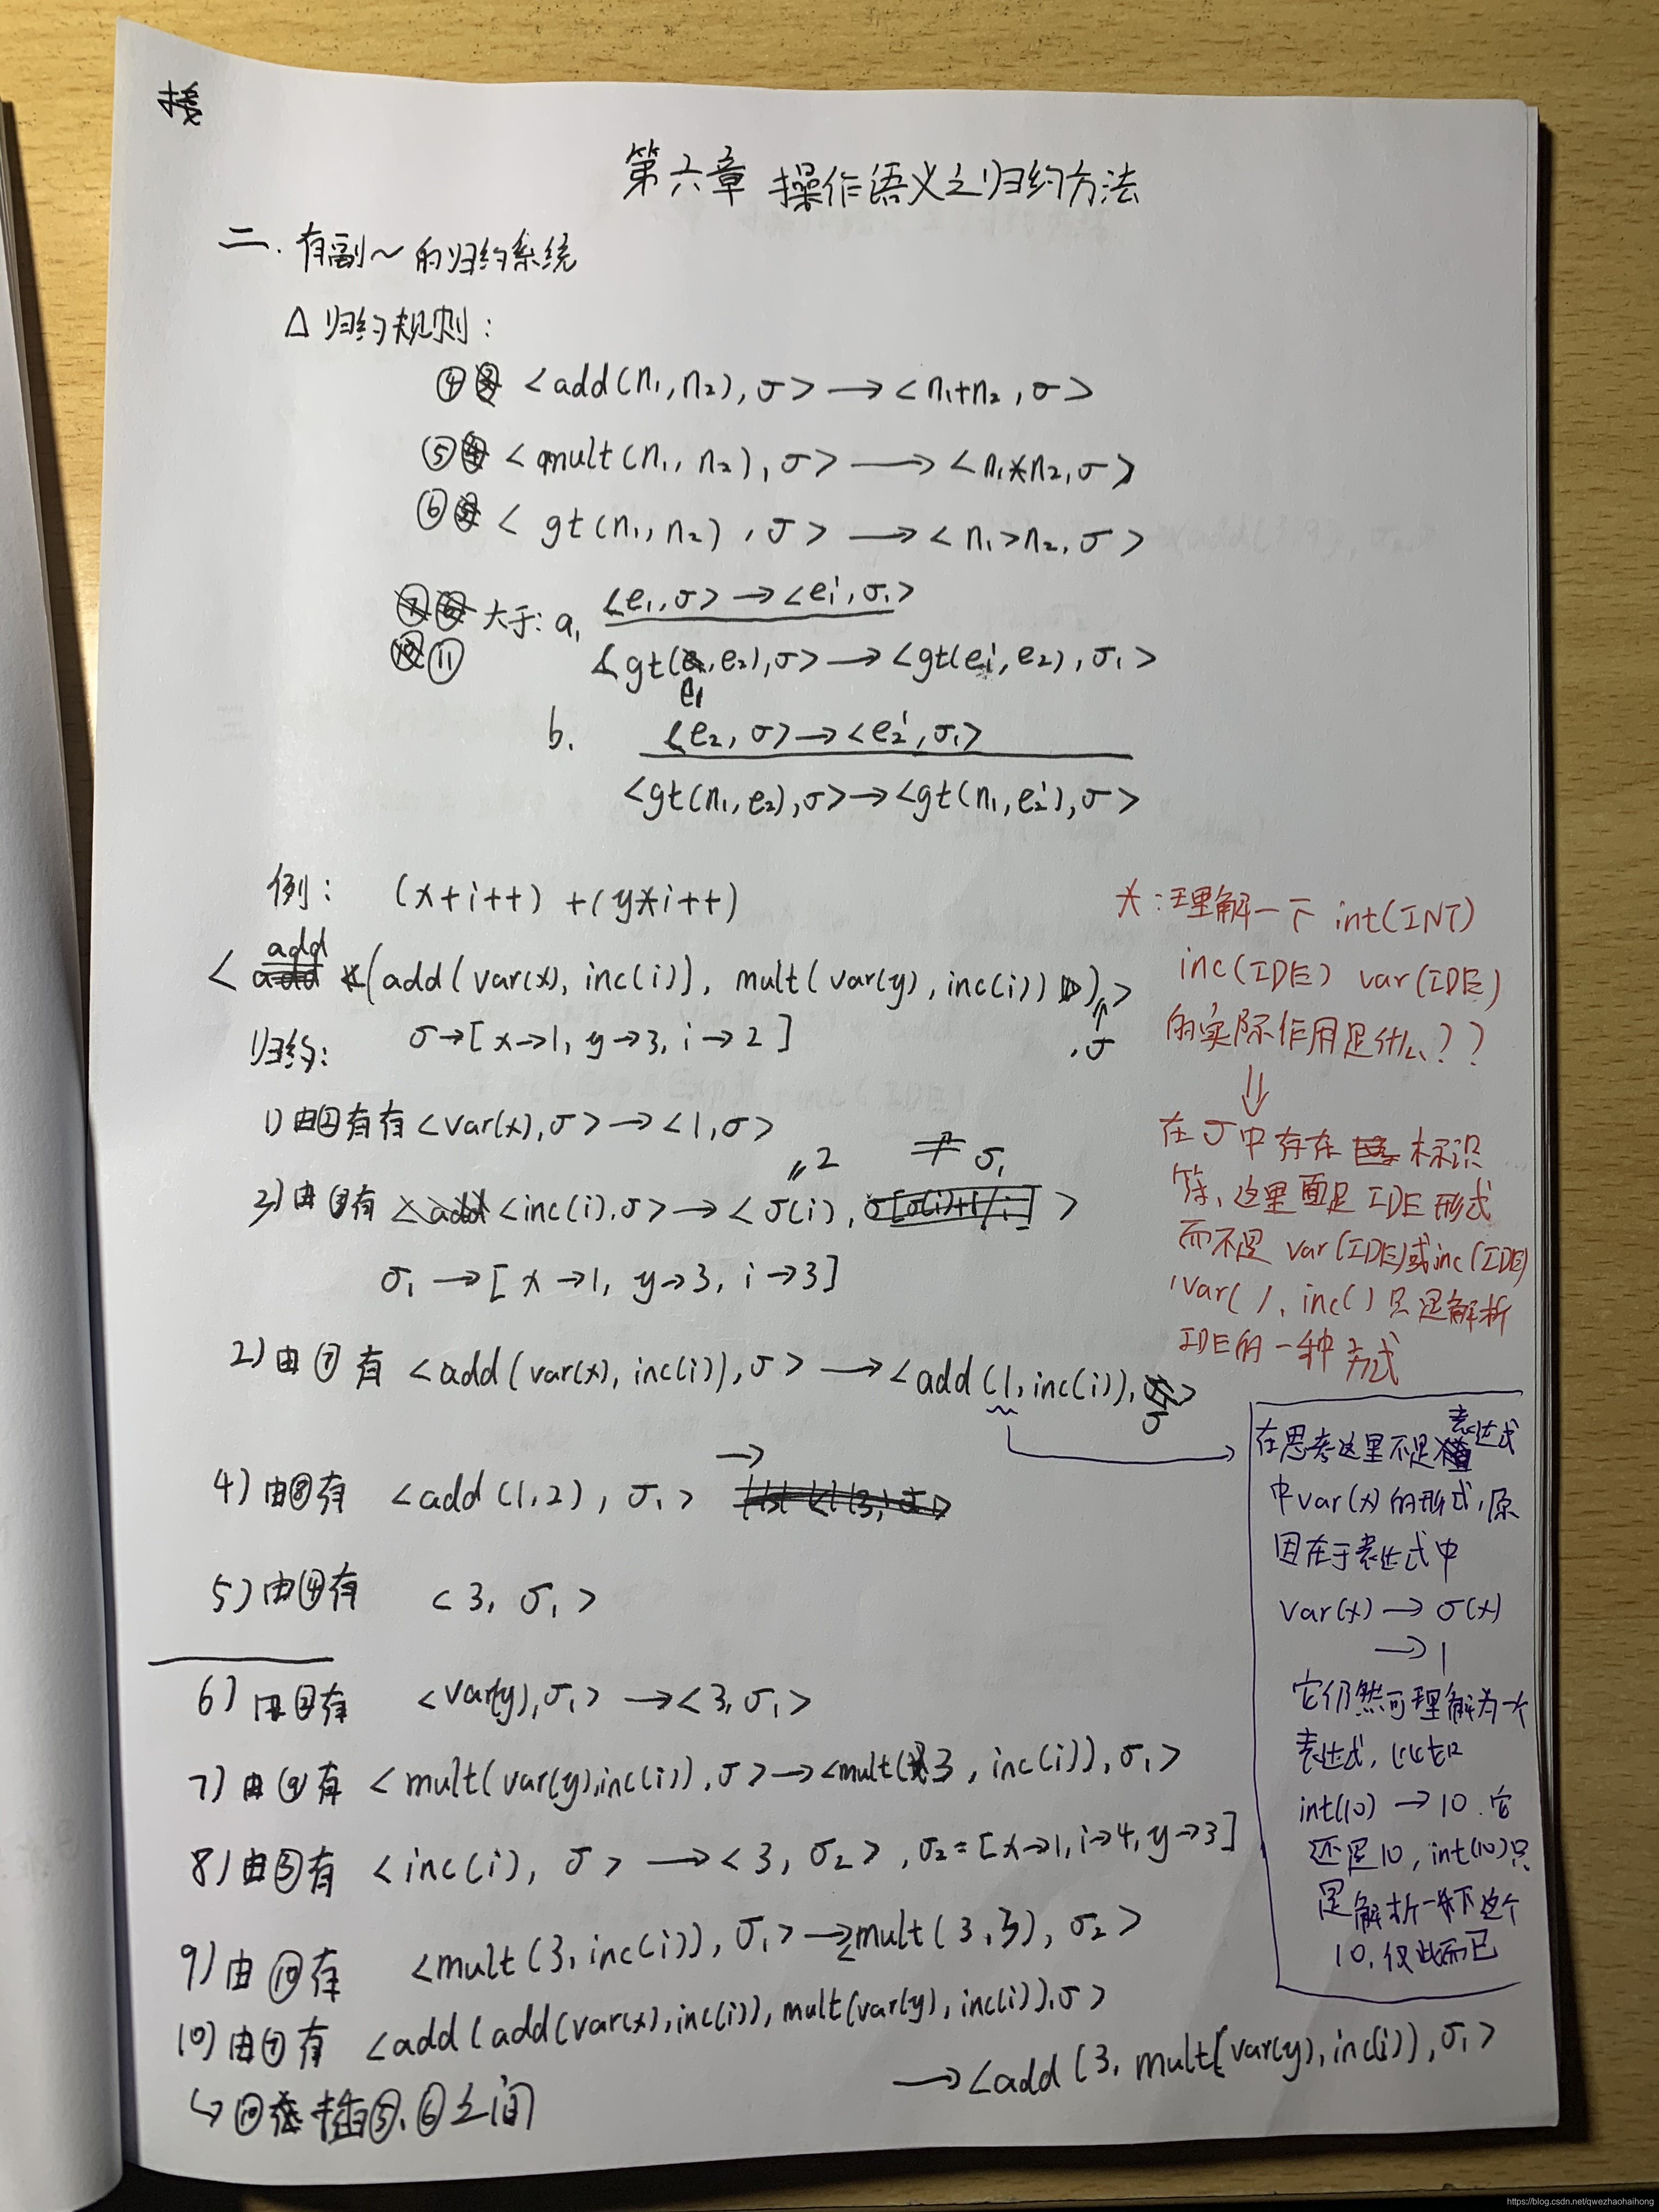 接
第六章 操作语义之归约方法
二. 有副~的归约系统
△ 归约规则:
④ <add(n₁,n₂),σ> → <n₁+n₂,σ>
⑤ <mult(n₁,n₂),σ> → <n₁*n₂,σ>
⑥ <gt(n₁,n₂),σ> → <n₁>n₂,σ>
⑪ 大于: a, <e₁,σ> → <e₁',σ₁>
<gt(e₁,e₂),σ> → <gt(e₁',e₂),σ₁>
b. <e₂,σ> → <e₂',σ₁>
<gt(n₁,e₂),σ> → <gt(n₁,e₂'),σ>
例: (x+i++)+(y*i++)
<add(add(var(x),inc(i)),mult(var(y),inc(i))),σ>
归约: σ→[x→1,y→3,i→2]
1) 由②有有<var(x),σ>→<1,σ>
3) 由③有 <inc(i),σ>→<σ(i), σ₁>
=2
σ₁→[x→1,y→3,i→3]
2) 由⑦有 <add(var(x),inc(i)),σ>→<add(1,inc(i)),σ>
4) 由⑧有 <add(1,2),σ₁> →
5) 由④有 <3,σ₁>
6) 由②有 <var(y),σ₁>→<3,σ₁>
7) 由⑨有 <mult(var(y),inc(i)),σ>→<mult(3,inc(i)),σ₁>
8) 由③有 <inc(i),σ>→<3,σ₂>,σ₂=[x→1,i→4,y→3]
9) 由⑩有 <mult(3,inc(i)),σ₁>→<mult(3,3),σ₂>
10) 由⑦有 <add(add(var(x),inc(i)),mult(var(y),inc(i)),σ>
→<add(3,mult(var(y),inc(i)),σ₁>
↳ ⑩在插⑤、⑥之间
*:理解一下 int(INT)
inc(IDE) var(IDE)
的实际作用是什么??
⇓
在σ中存在标识
符,这里面是IDE形式
而不是var(IDE)或inc(IDE)
,var( )、inc( )只是解析
IDE的一种方式
在思考这里不是表达式
中var(x)的形式,原
因在于表达式中
var(x)→σ(x)
→1
它仍然可理解为一个
表达式,
int(10)→10.它
还是10,int(10)只
是解析一下这个
10,仅此而已
https://blog.csdn.net/qwezhaohaihong